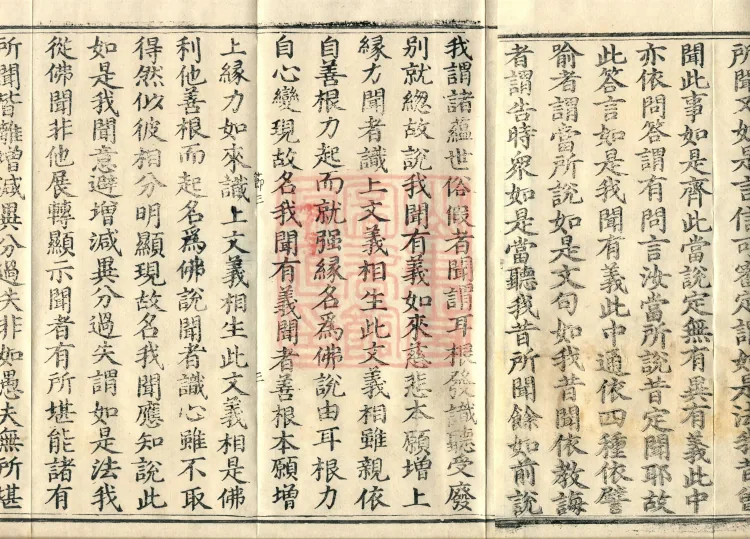 所聞又如是言信可審定謂如是法我昔曾
聞此事如是齊此當說定無有異有義此中
亦依問答謂有問言汝當所說昔定聞耶故
此答言如是我聞有義此中通依四種依譬
喻者謂當所說如是文句如我昔聞依教誨
者謂告時眾如是當聽我昔所聞餘如前說
我謂諸蘊世俗假者聞謂耳根發識聽受廢
別就總故說我聞有義如來慈悲本願增上
緣力聞者識上文義相生此文義相雖親依
自善根力起而就强緣名爲佛說由耳根力
自心變現故名我聞有義聞者善根本願增
上緣力如來識上文義相生此文義相是佛
利他善根而起名爲佛說聞者識心雖不取
得然似彼相分明顯現故名我聞應知說此
如是我聞意避增減異分過失謂如是法我
從佛聞非他展轉顯示聞者有所堪能諸有
所聞皆離增減異分過失非如愚夫無所堪